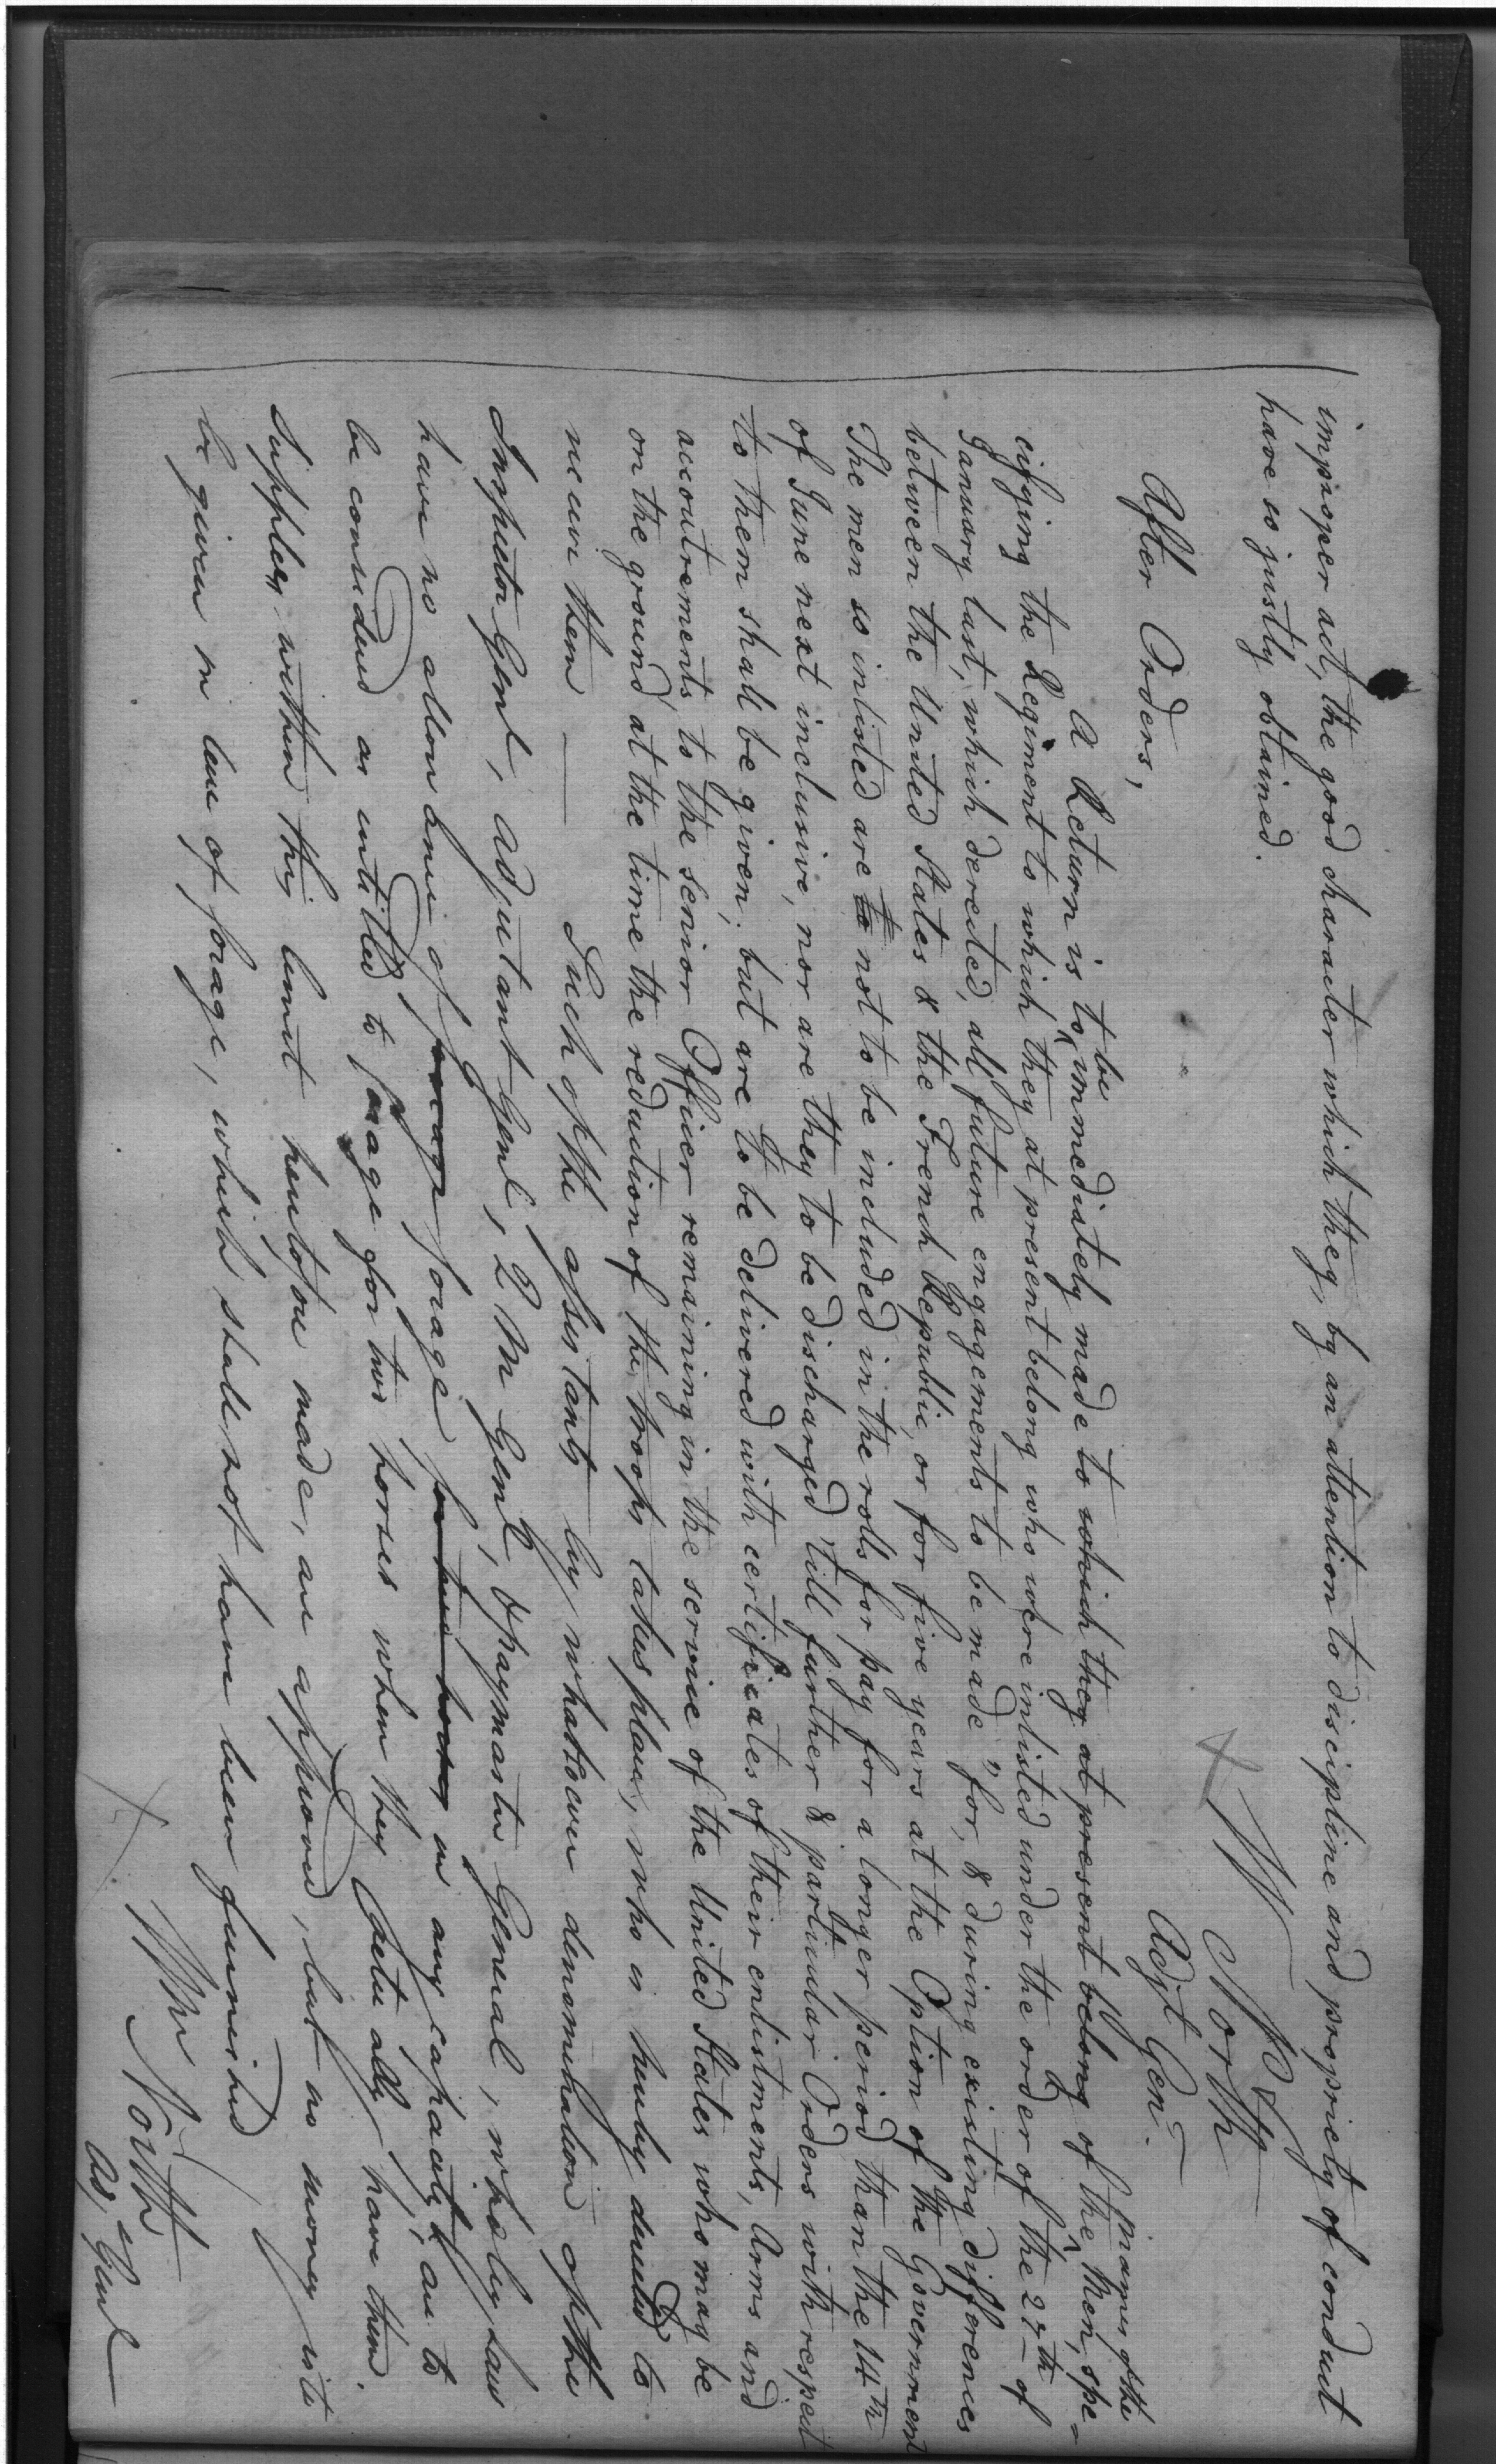 improper act, the good character which they, by an attention to discipline and propriety of conduct
have so justly obtained.
W North
Adjt Genl
After Orders,
A Return is to be immediately made to which they at present belong of the names of the Men, spe=
cifying the Regiment to which they at present belong who were inlisted under the order of the 27th of
January last, which derected, all future engagements to be made "for, & during existing differences
between the United States & the French Republic, or for five years at the Option of the Government
The men so inlisted are to not to be included in the rolls for pay for a longer period than the 14th
of June next inclusive, nor are they to be discharged 'till further & particular Orders with respect
to them shall be given; but are to be delivered with certificates of their enlistments, Arms and
accoutrements, to the senior Officer remaining in the service of the United States who may be
on the ground at the time the reduction of the troops takes place, who is hereby directed to
receive them — Such of the assistants by whatsoever denomination of the
Inspector Genl, Adjutant Genl, 2 M Genl, & paymaster General, who by Law
have no allowance of forage forage for two horses in any capacity, are to
be considered as intitled to forage for two horses when they actually have them.
Supplies within this limit heretofore made, are approved, but no money is to
be given in lieu of forage, which shall not have been furnished
Wm North
Adj Genl